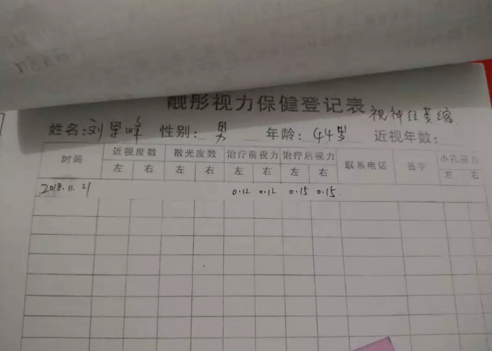 靓彤视力保健登记表 视神经萎缩
姓名: 刘 峰 性别: 男 年龄: 44岁 近视年数:
时间 近视度数 散光度数 治疗前视力 治疗后视力 联系电话 签字 小孔视力
左 右 左 右 左 右 左 右 左 右
2018.11.21 0.12 0.12 0.15 0.15